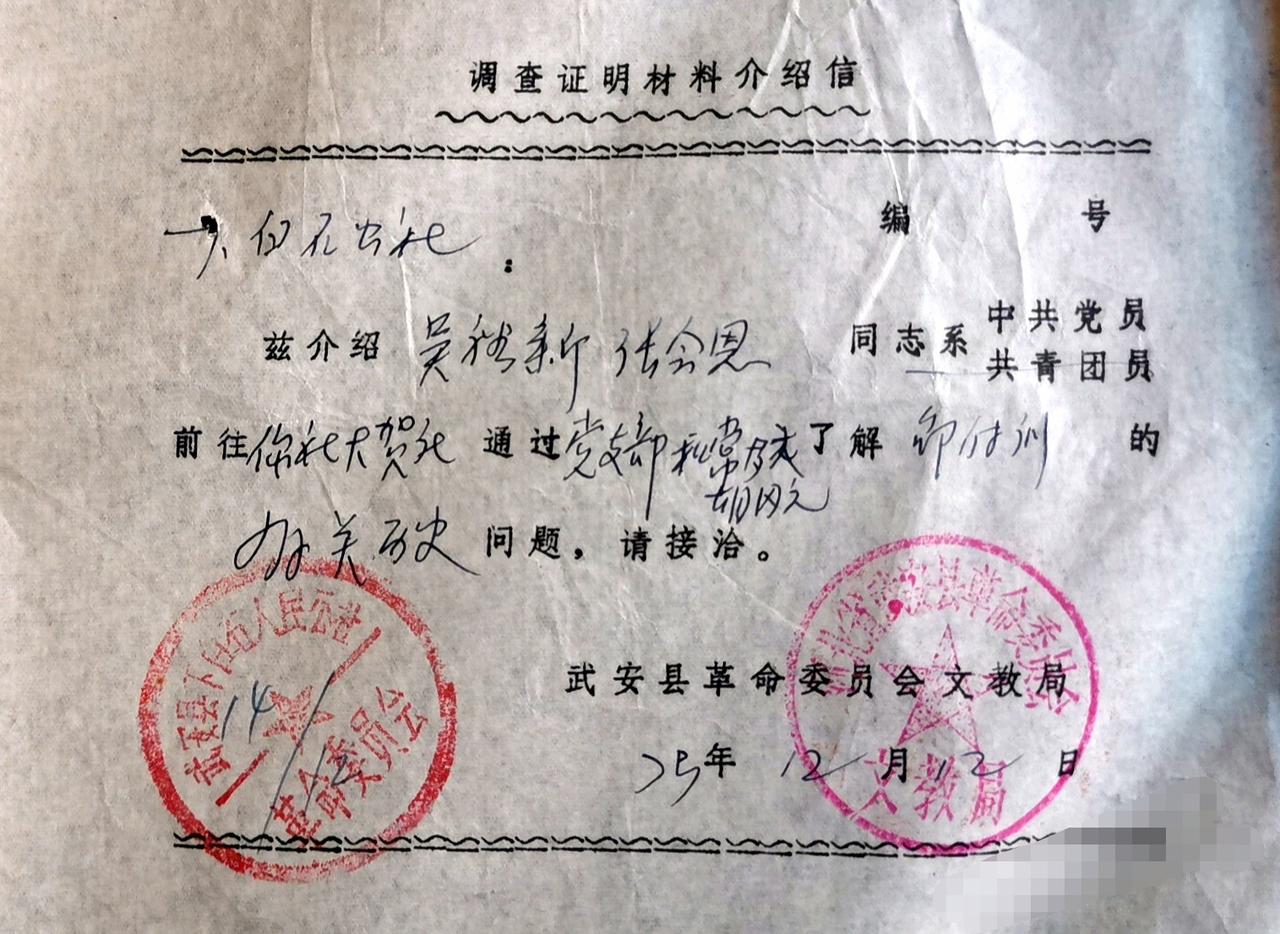 调查证明材料介绍信
编 号
下白石公社：
兹介绍 吴 新 张会恩 同志系 中共党员
共青团员
前往你社大贺社 通过党支部和常 成 了解 的
胡
有关历史 问题，请接洽。
武安县革命委员会文教局
75年 12月12日
武安县下白石人民公社
革命委员会
14/12
河北省武安县革命委员会
文教局